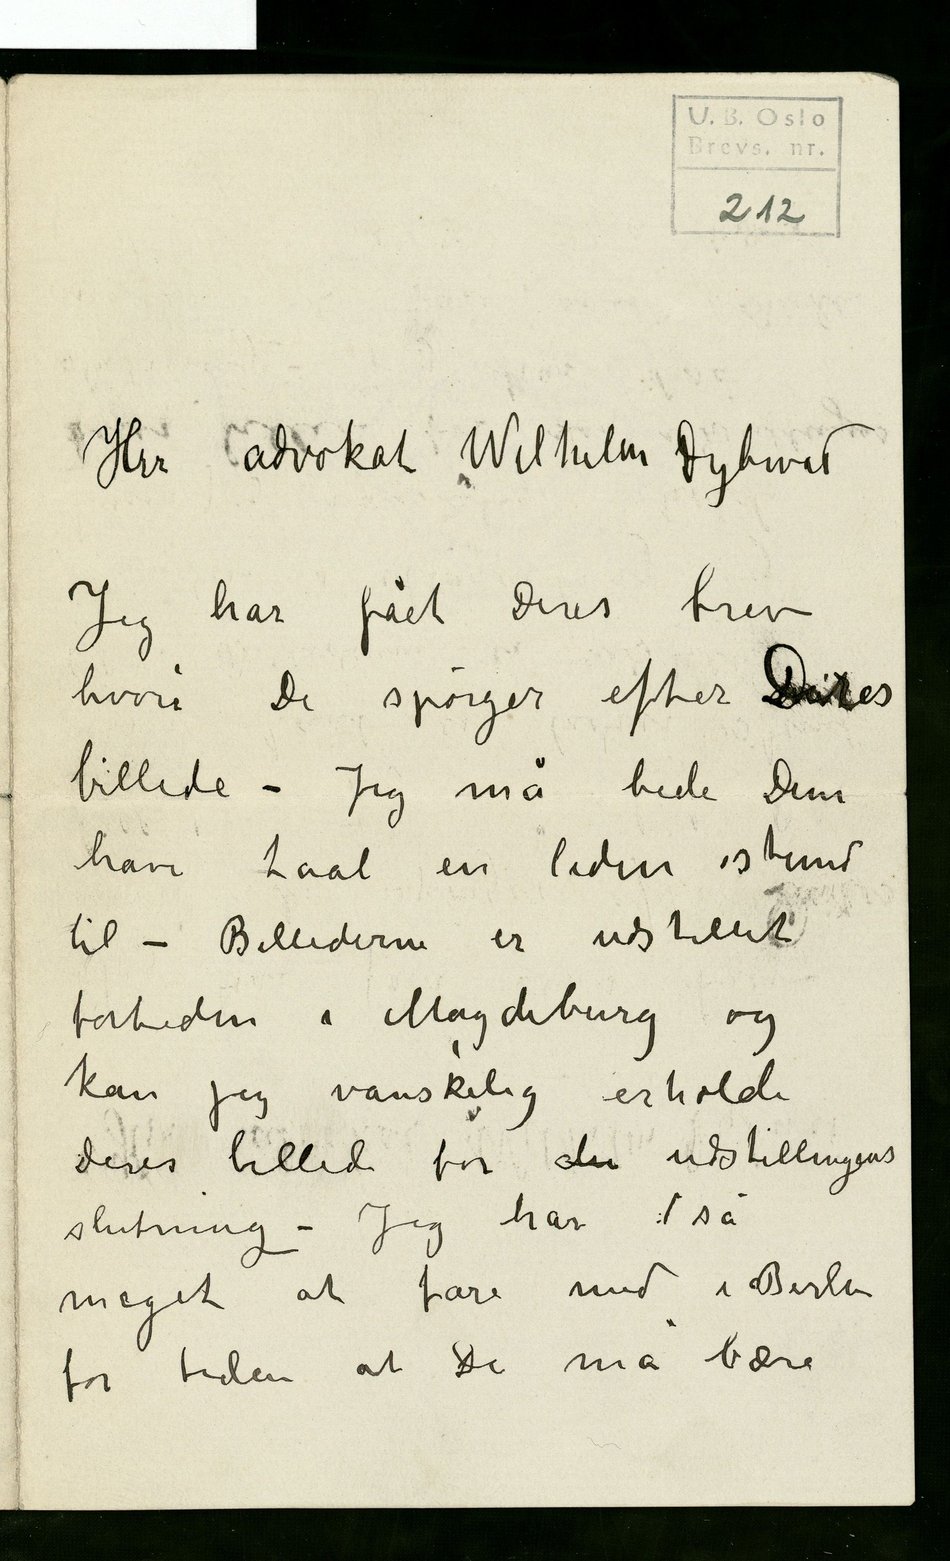 U. B. Oslo
Brevs. nr.
212
Herr advokat Wilhelm Dybwad
Jeg har fået Deres brev
hvori De spörger efter Deres
billede – Jeg må bede Dem
have taal en liden stund
til – Billederne er udstillet
fortiden i Magdeburg og
kan jeg vanskelig erholde
deres billede för den udstillingens
slutning – Jeg har så
meget at fare med i Berlin
for tiden at De må bære